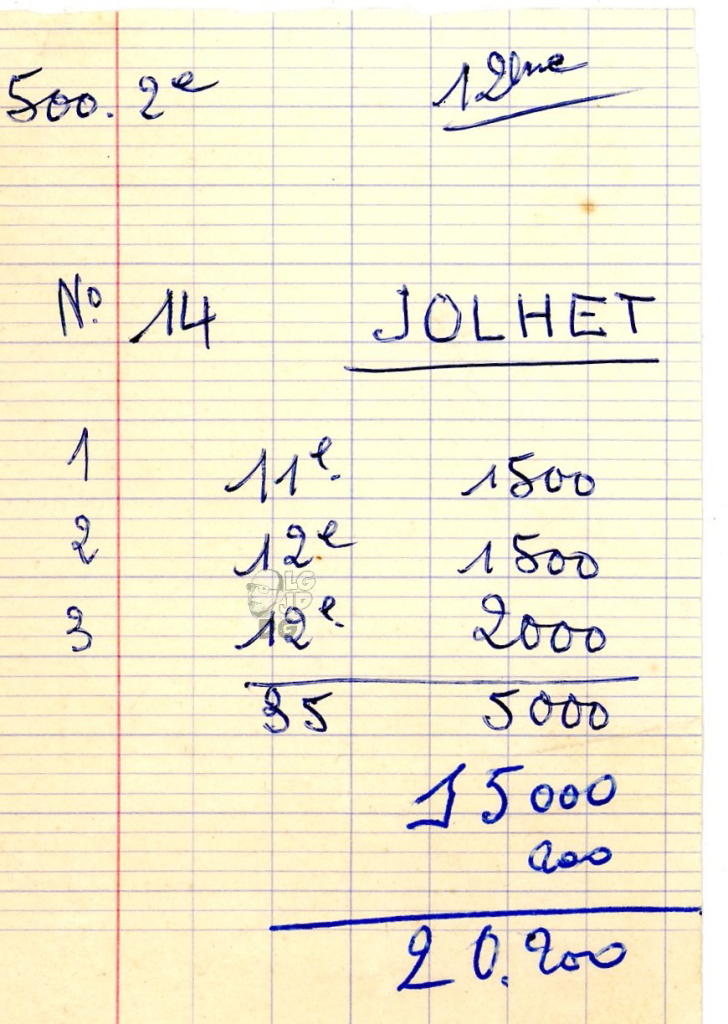 500. 2e 12ème
No. 14 JOLHET
1 11e. 1500
2 12e 1500
3 12e. 2000
35 5000
15000
200
20.200